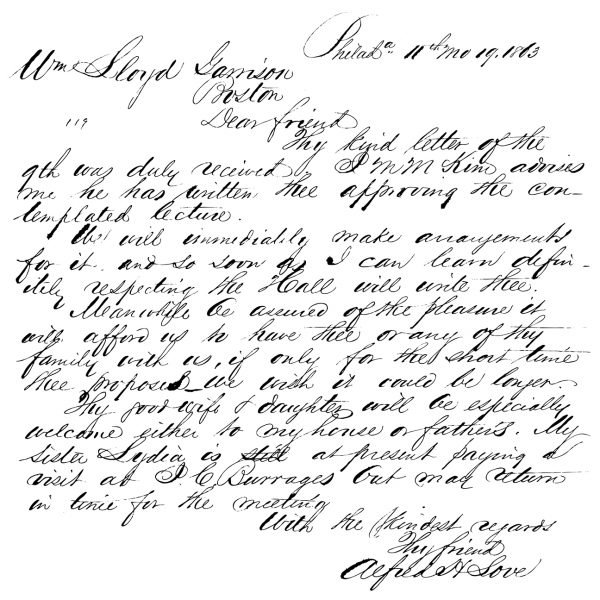 Philada 11th mo 19. 1863
Wm Lloyd Garrison
Boston
119
Dear friend
Thy kind letter of the
9th was duly received. J M M Kim advises
me he has written thee approving the con-
templated lecture.
We will immediately make arrangements
for it, and so soon as I can learn defin-
itely respecting the Hall will write thee.
Meanwhile be assured of the pleasure it
will afford us to have thee or any of thy
family with us, if only for the short time
thee proposed - we wish it could be longer.
Thy good wife & daughter will be especially
welcome either to my house or father's. My
sister Lydia is still at present paying a
visit at J. C. Burrages but may return
in time for the meeting
With the kindest regards
Thy friend
Alfred H Love